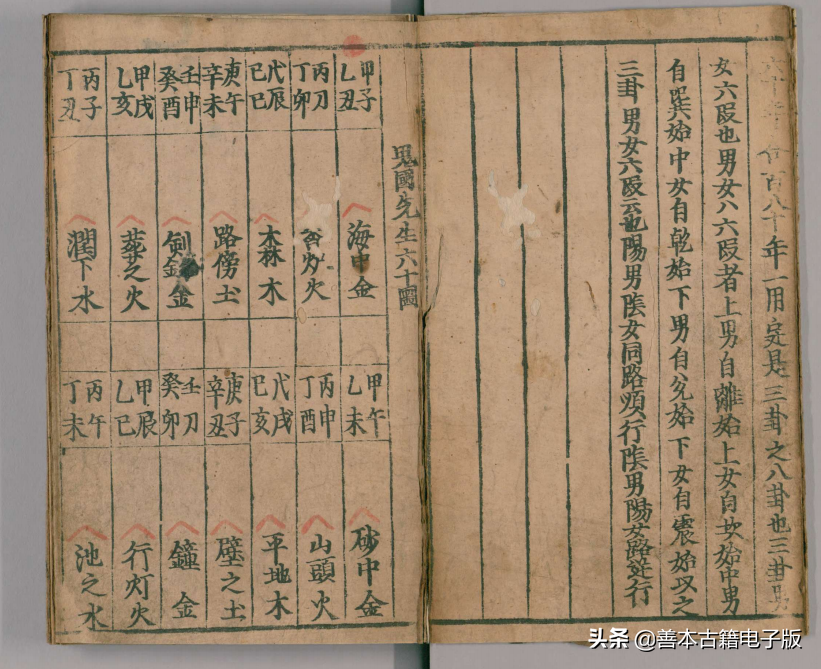 百八十年一用定是三卦之八卦也三卦男
女六叚也男女八六叚者上男自離始上女自坎始中男
自巽始中女自乾始下男自兊始下女自震始以之
三卦男女六叚云也陽男陰女同路順行陰男陽女路逆行
鬼國先生六十圖
甲子
乙丑
海中金
甲午
乙未
砂中金
丙刀
丁卯
灯火
丙申
丁酉
山頭火
戊辰
己巳
森木
戊戌
己亥
平地木
庚午
辛未
路傍土
庚子
辛丑
壁之土
壬申
癸酉
釼金
壬刀
癸卯
鐘金
甲戌
乙亥
葬之火
甲辰
乙巳
行灯火
丙子
丁丑
潤下水
丙午
丁未
池之水
头条 @善本古籍电子版